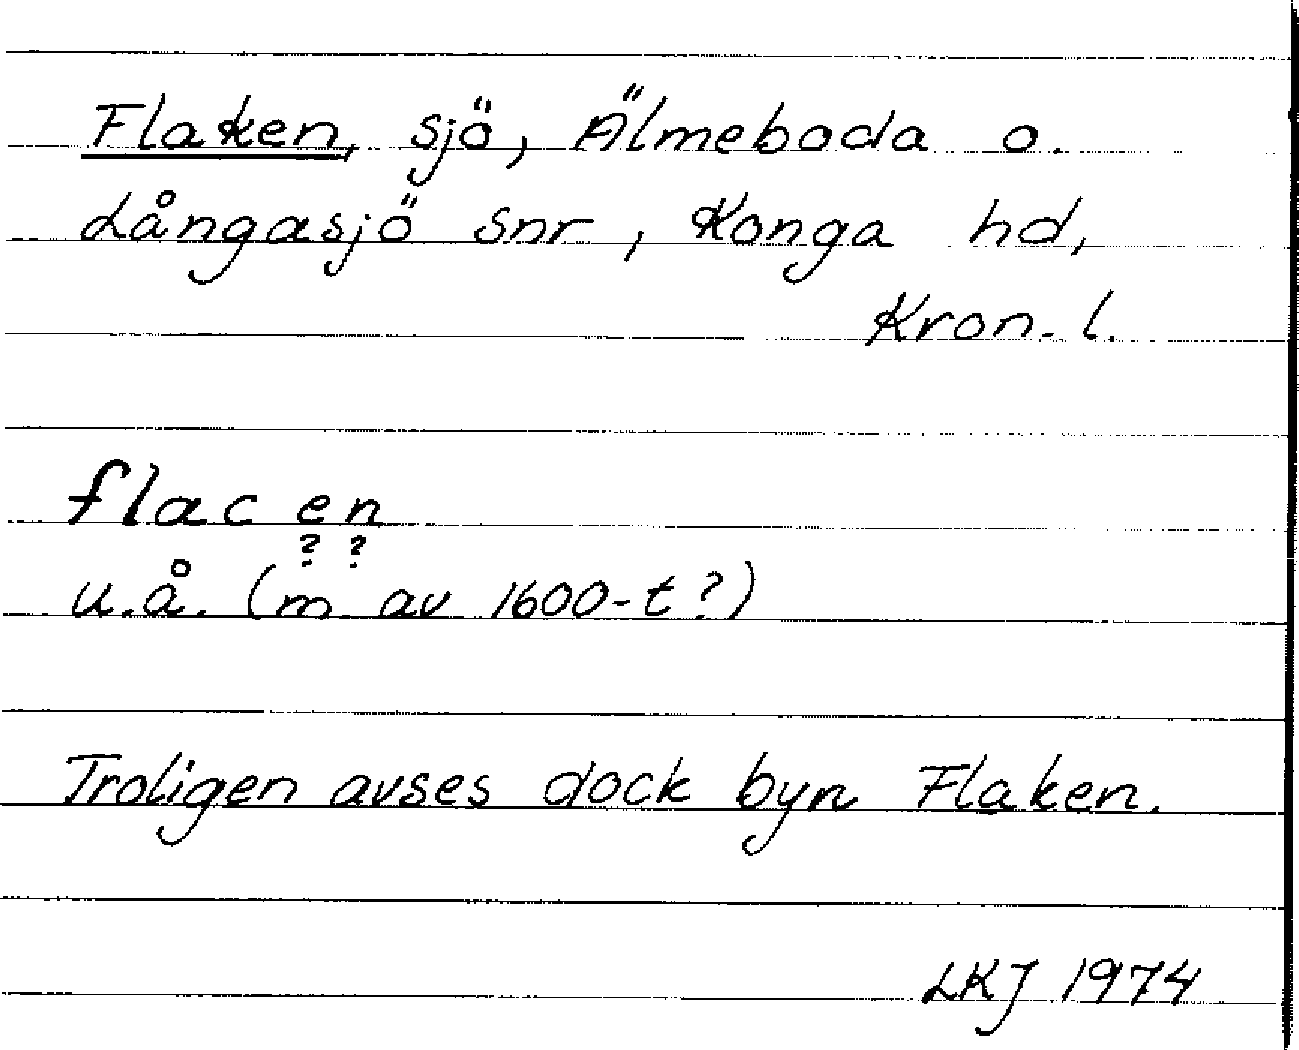 Flaken, sjö, Älmeboda o.
Långasjö snr, Konga hd,
Kron. l.
flac en
? ?
u.å. (m av 1600-t?)
Troligen avses dock byn Flaken.
LKJ 1974